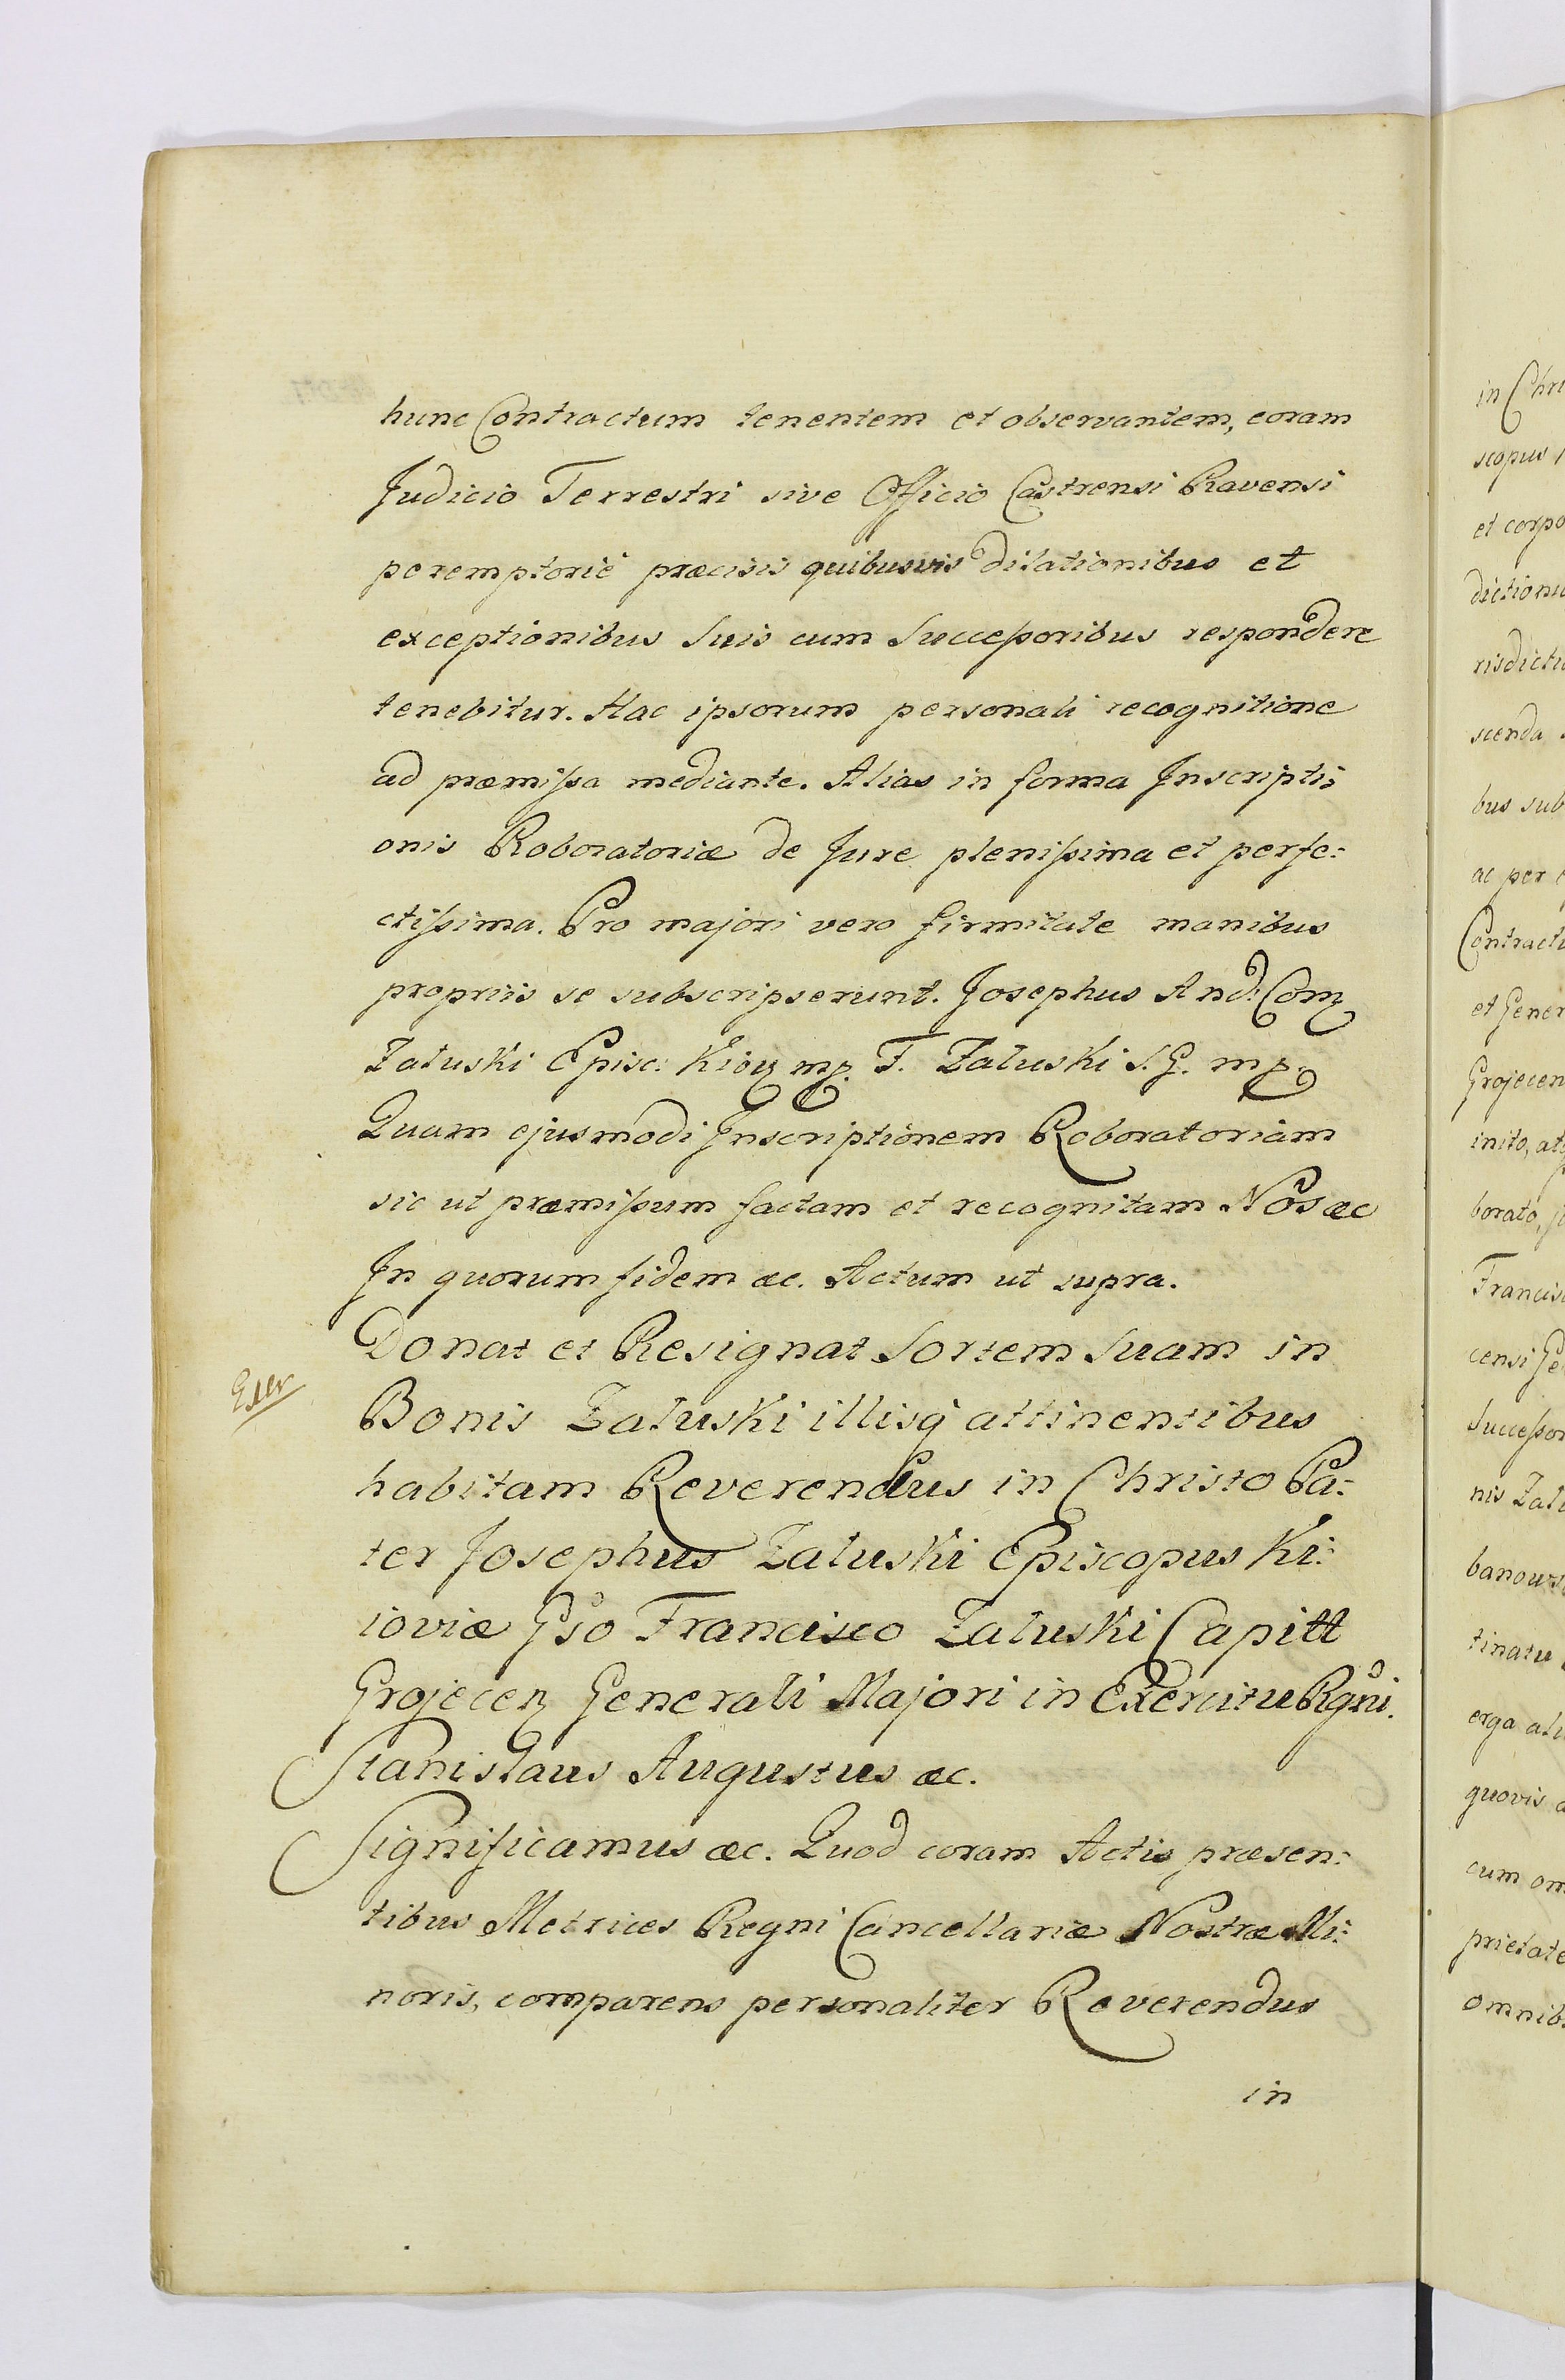 hunc Contractum tenentem et observantem, coram
Judicio Terrestri sive Officio Castrensi Ravensi
peremptorie præcisis quibusvis dilationibus et
exceptionibus Suis cum Successoribus respondere
tenebitur. Hac ipsorum personali recognitione
ad præmissa mediante. Alias in forma Inscripti:
onis Roboratoriæ de Jure plenissima et perfe:
ctissima. Pro majori vero firmitate manibus
propriis se subscripserunt. Josephus And: Com
Zaluski Episc: Kiov mp. F. Zaluski S. G. mp.
Quam ejusmodi Inscriptionem Roboratoriam
sic ut præmissum factam et recognitam Nos æc
In quorum fidem æc. Actum ut supra.
Donat et Resignat Sortem Suam in
Bonis Zaluski illisq attinentibus
habitam Reverendus in Christo Pa:
ter Josephus Zaluski Episcopus Ki:
ioviæ Gso Francisco Zaluski Capitt
Grojecen Generali Majori in Exercitu Rgni.
Stanislaus Augustus æc.
Significamus æc. Quod coram Actis præsen:
tibus Metrices Regni Cancellariæ Nostræ Mi:
noris, comparens personaliter Reverendus
in
in Chri
scopus
et corpo
dictioni
risdicti
scenda
bus sub
ac per
Contractu
et Gener
Grojecen
inito, atq
borato,
Francis
censi Ge
Successor
nis Zalu
banows
tinatu
erga ali
quovis
cum om
prietate
omnib